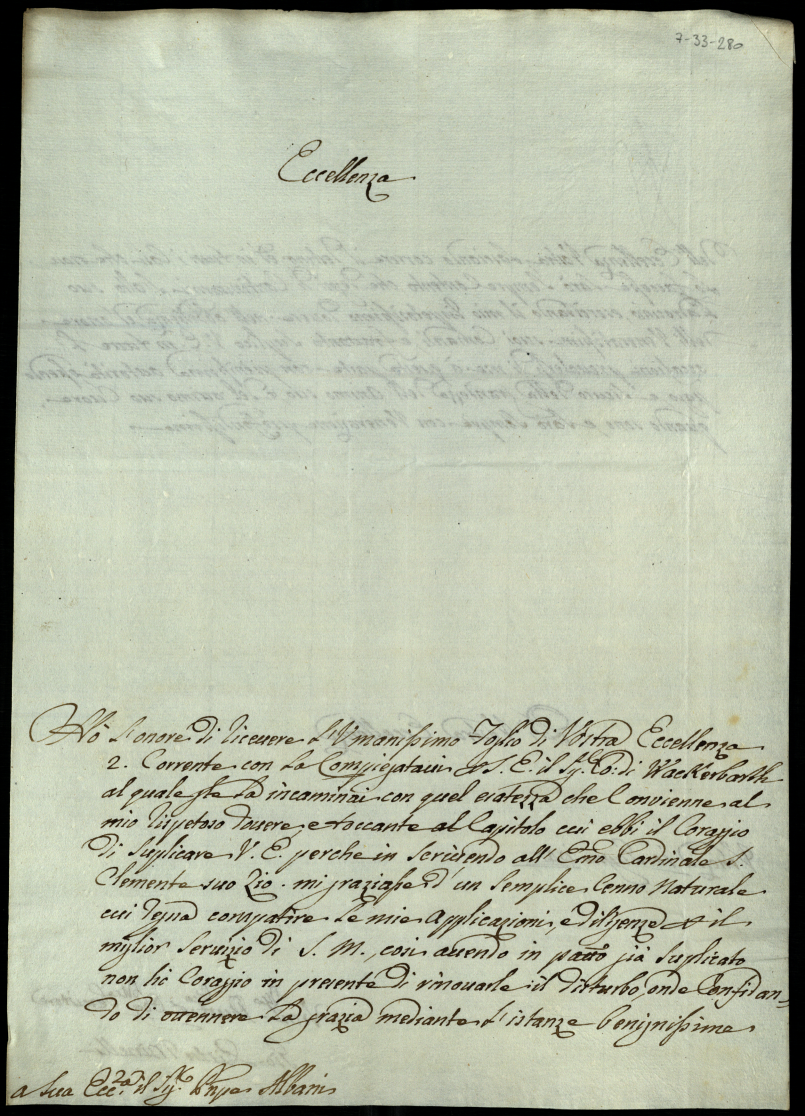 7-33-280
Eccellenza
Hò l'onore di riceuere l'Vmanissimo Foglio di Vostra Eccellenza
2. Corrente con la Compiegataui S. E. il Sig. Co: di Wackerbarth
al quale la incaminai con quel esatezza che Conuienne al
mio rispetoso douere, e toccante al Capitolo cui ebbi il Coraggio
di suplicare V. E. perche in scriuendo all' Emo Cardinale S.
Clemente suo Zio. mi graziasse d' un semplice Cenno Naturale
cui degna compatire le mie applicazioni, e diligenze il
miglior seruizio di S. M., cosi auendo in già suplicato
non hò Coraggio in presente di rinouarle il disturbo, onde Confidan-
do di ottennere la grazia mediante l'istanze benignissime
a Sua Ecc.za il Sig.r Albani